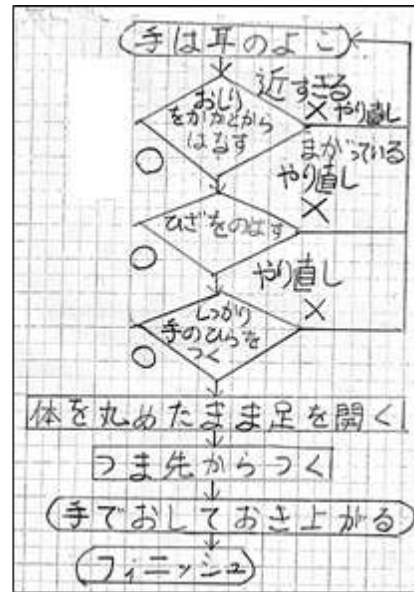 手は耳のよこ
近すぎる
× やり直し
おしり
をかかとから
はなす
○
まがっている
やり直し
×
ひざをのばす
○
やり直し
×
しっかり
手のひらを
つく
○
体を丸めたまま足を開く
つま先からつく
手でおしておき上がる
フィニッシュ